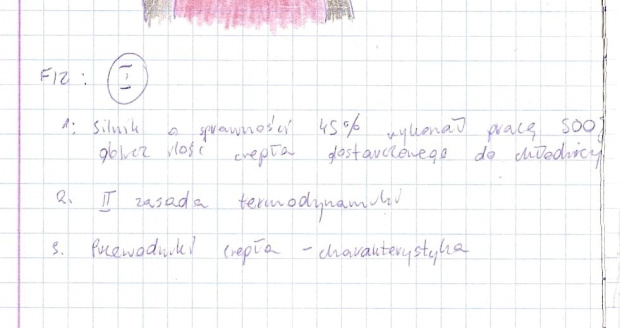 FIZ : I
1: Silnik o sprawności 45% wykonał pracę 500J
oblicz ilość ciepła dostarczonego do chłodnicy
2. II zasada termodynamiki
3. Przewodniki ciepła - charakterystyka